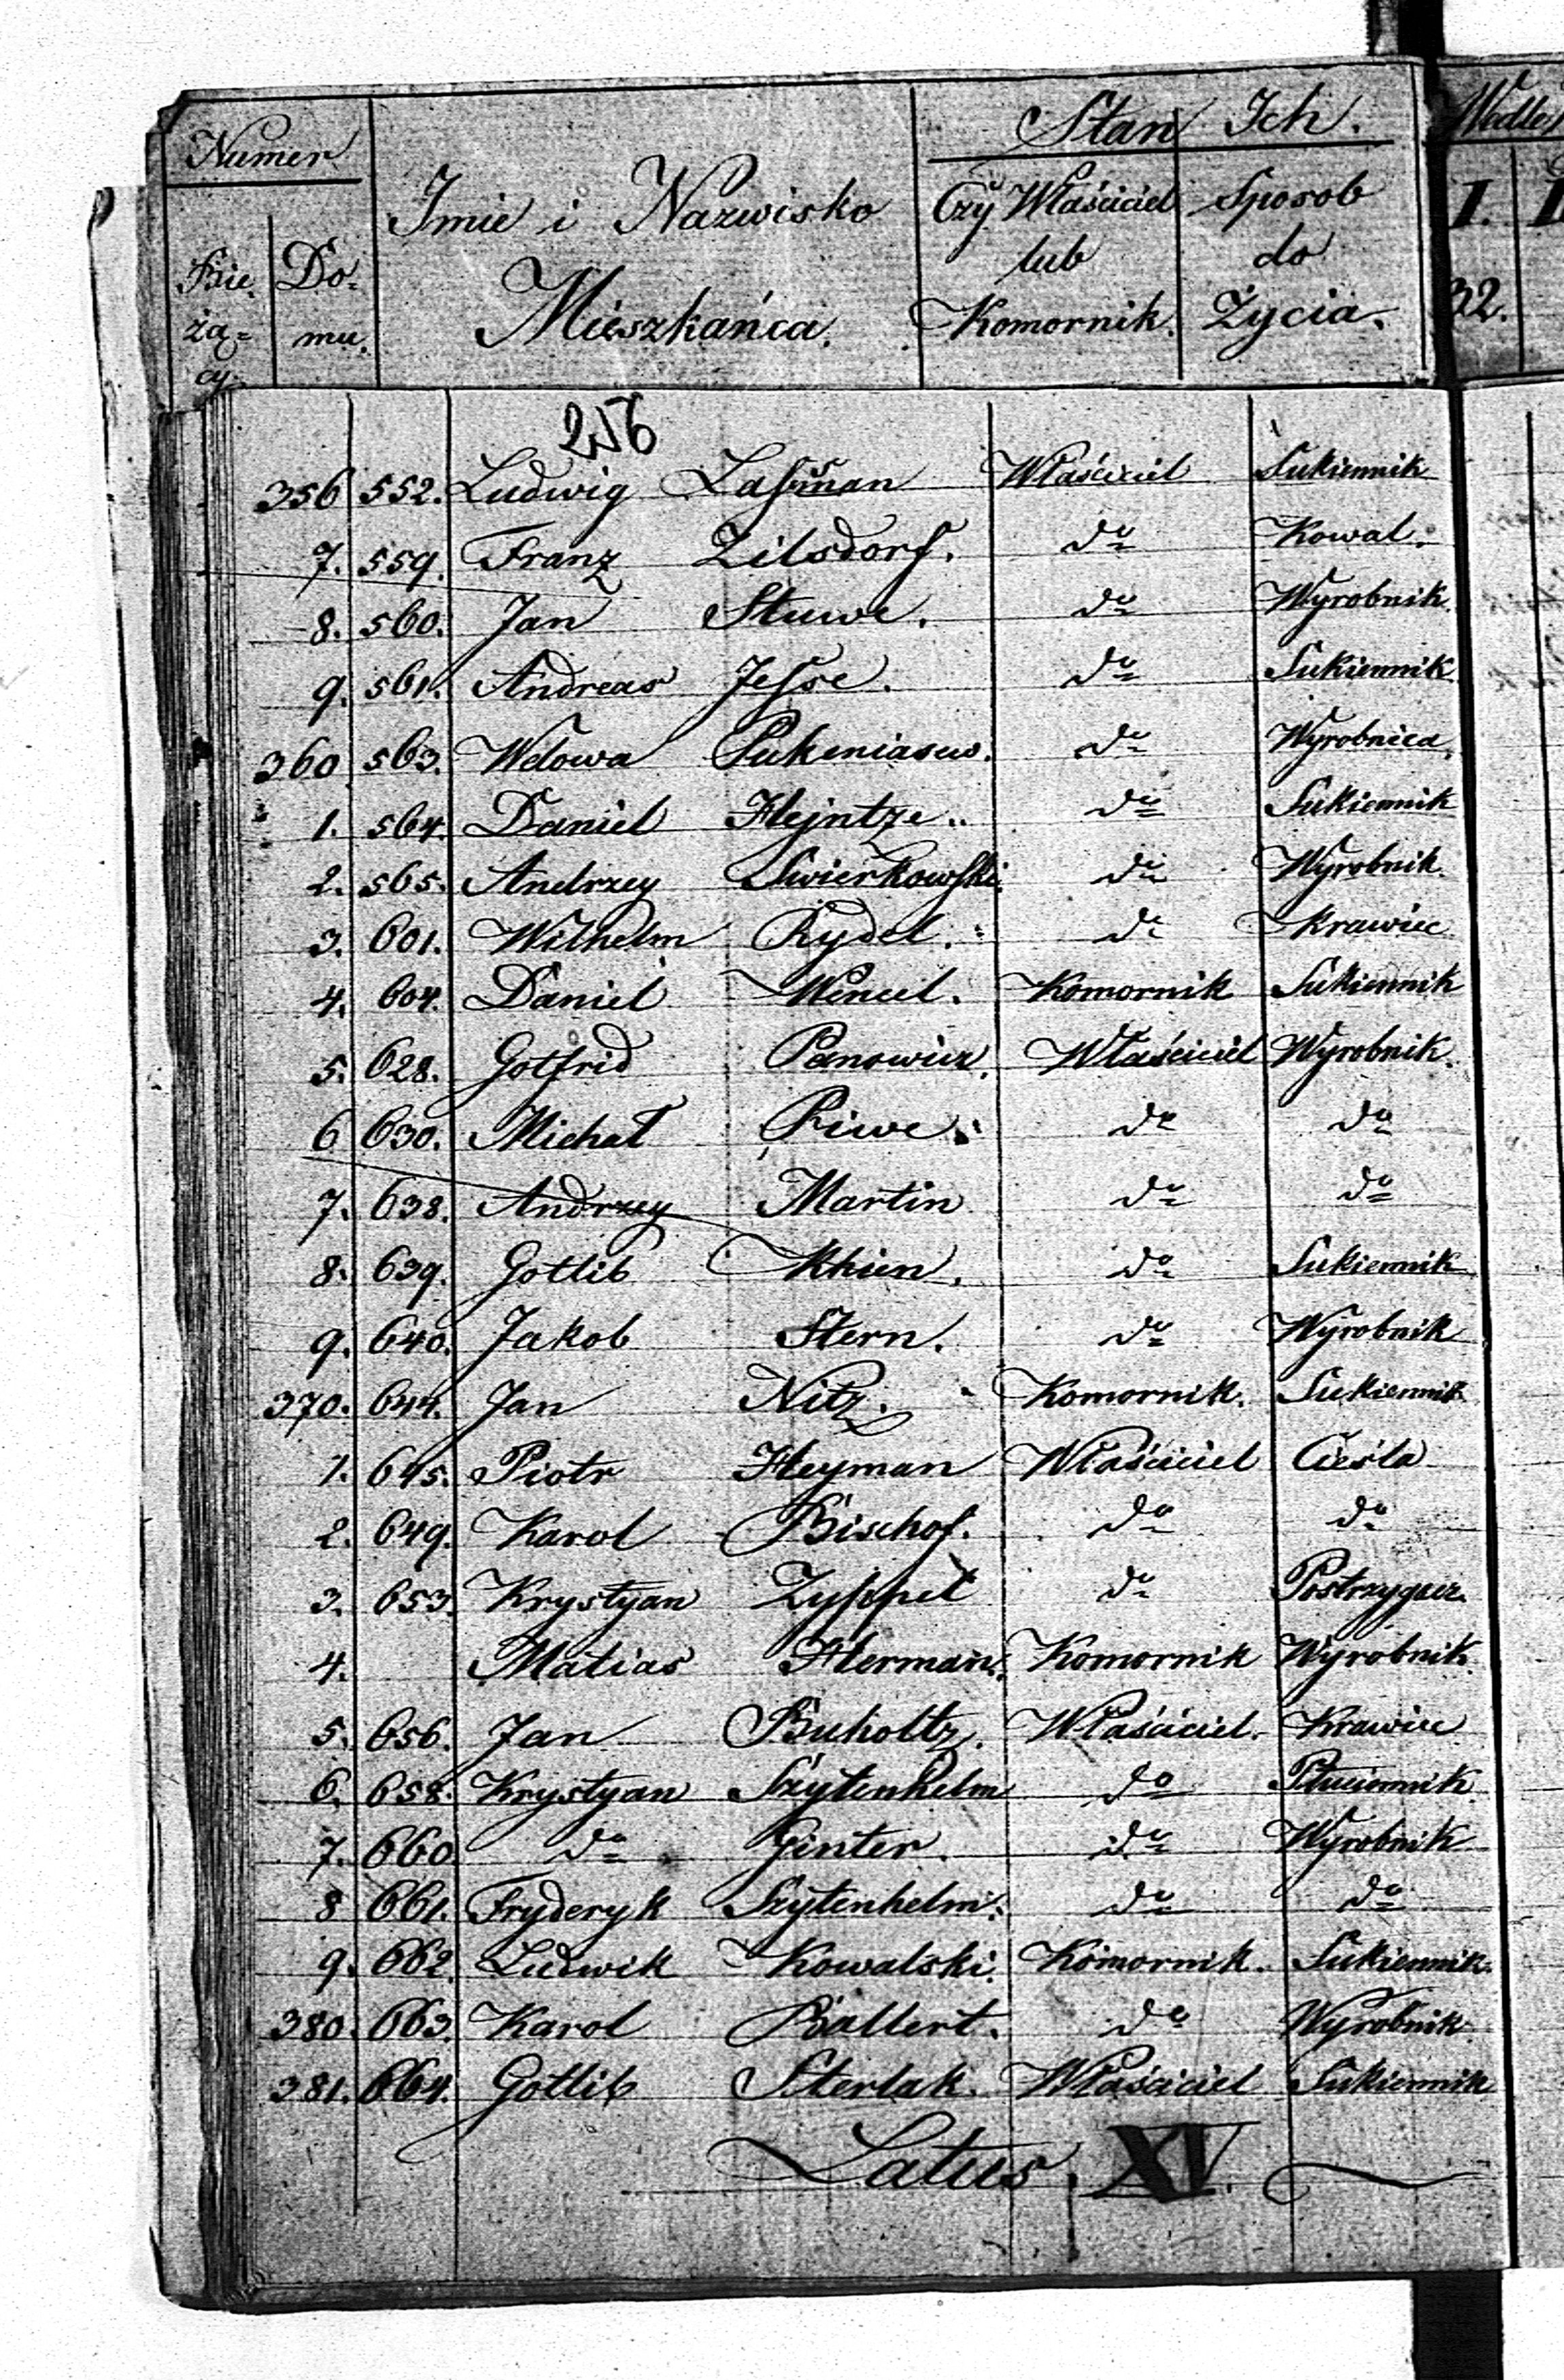 Numer
Bie-
żą-
cy.
Do-
mu.
Imie i Nazwisko
Mieszkańca.
Stan Ich.
Czy Właściciel
lub
Komornik.
Sposob
do
Życia.
I.
32.
256
356 552. Ludwig Laſsman Właściciel Sukiennik
7. 559. Franz Zilsdorf. do Kowal.
8. 560. Jan Stuwe. do Wyrobnik
9. 561. Andreas Jeſse. do Sukiennik
360 563. Wdowa do Wyrobnica
1. 564. Daniel Hejntze do Sukiennik
2. 565. Andrzey Swierkowſki do Wyrobnik.
3. 601. Wilhelm Rydel. do Krawiec
4. 604. Daniel Wencel. Komornik Sukiennik
5. 628. Gotfrid Panowicz. Właściciel Wyrobnik.
6 630. Michał Piwe. do do
7. 638. Andrzey Martin do do
8. 639. Gotlib Khien. do Sukiennik
9. 640. Jakob Stern. do Wyrobnik
370. 644. Jan Nitz. Komornik. Sukiennik
1. 645. Piotr Heyman Właściciel Cieśla
2. 649. Karol Bischof. do do
3. 653. Krystyan Zyppel do Postrzygacz.
4. Matias Herman. Komornik Wyrobnik.
5. 656. Jan Buholtz. Właściciel. Krawiec
6. 658. Krystyan Szytenhelm do Płuciennik
7. 660. do Ginter. do Wyrobnik
8 661. Fryderyk Szytenhelm. do do
9. 662. Ludwik Kowalski. Komornik. Sukiennik.
380. 663. Karol Ballert. do Wyrobnik.
381. 664. Gotlib Sterlak. Właściciel Sukiennik
Latus XV.